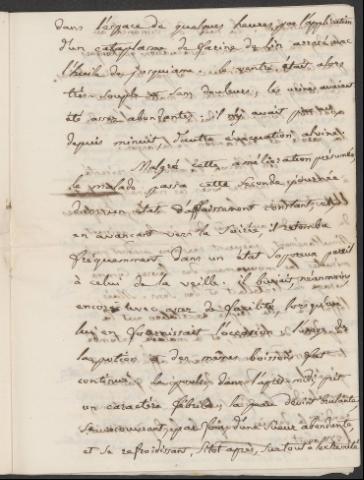 dans l'espace de quelques heures par l'application
d'un cataplasme de farine de lin arrosé avec
l'huile de jusquiame. le ventre était alors
très souple et sans douleurs; les urines avaient
été assez abondantes; il n'y avait pas eu
depuis minuit d'autre évacuation alvine.
Malgré cette amélioration présumée,
le malade passa cette seconde journée
dans un état d'affaissement constant, et
en avançant vers la soirée il retomba
fréquemment dans un état soporeux pareil
à celui de la veille; il buvait néanmoins
encore avec assez de facilité lorsqu'on
lui en fournissait l'occasion; l'usage de
la potion et des mêmes boissons fut
continué; le pouls dans l'après midi prit
un caractère fébrile, la peau devint brûlante
se recouvrant par fois d'une sueur abondante,
et se refroidissant sitôt après, surtout à l'extrémité